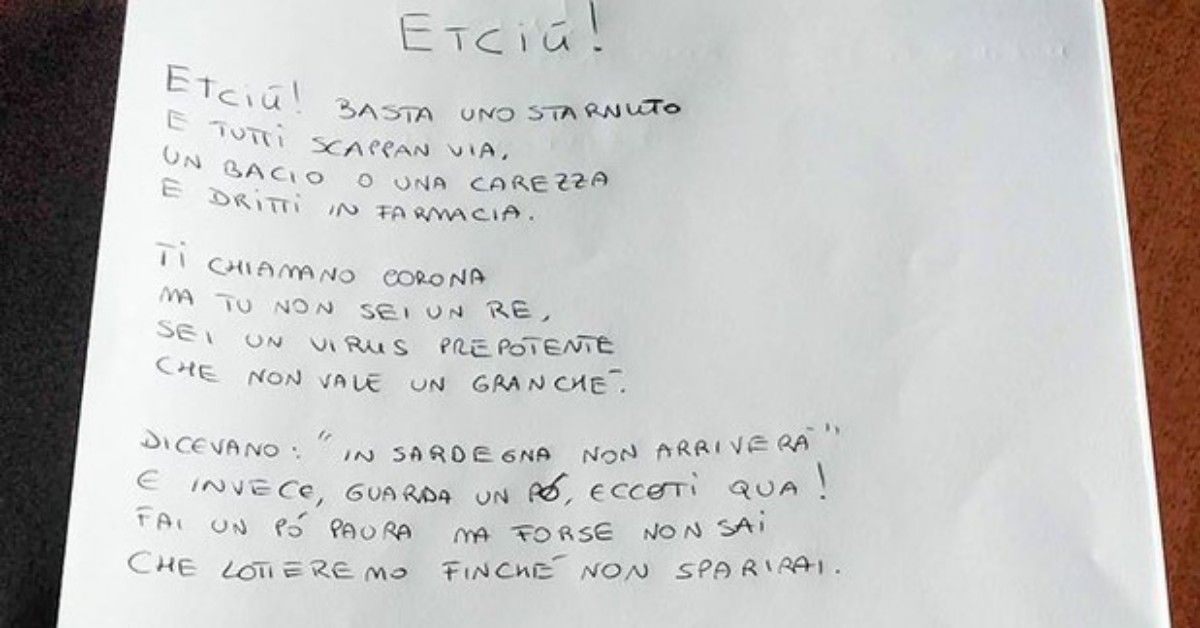 ETCIŪ!
ETCIŪ! BASTA UNO STARNUTO
E TUTTI SCAPPAN VIA,
UN BACIO O UNA CAREZZA
E DRITTI IN FARMACIA.
TI CHIAMANO CORONA
MA TU NON SEI UN RE,
SEI UN VIRUS PREPOTENTE
CHE NON VALE UN GRANCHÉ.
DICEVANO: "IN SARDEGNA NON ARRIVERÀ"
E INVECE, GUARDA UN PÓ, ECCOTI QUA!
FAI UN PÓ PAURA MA FORSE NON SAI
CHE LOTTEREMO FINCHÉ NON SPARIRAI.